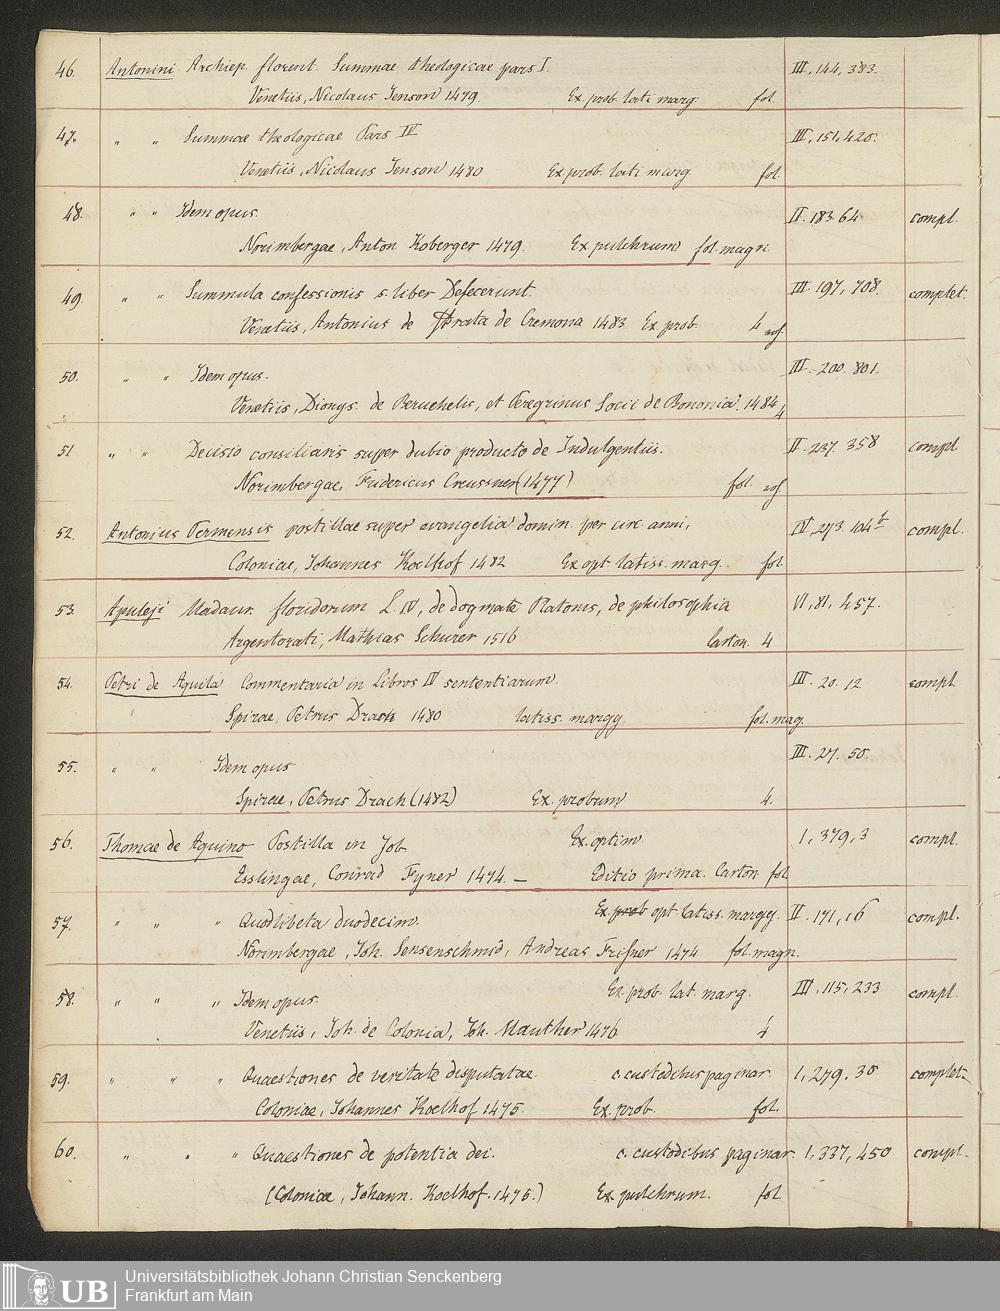 46. Antonini Archiep. florent. Summae theologicae pars I. III, 144, 383.
Venetiis, Nicolaus Jenson 1479. Ex. prob. lati marg. fol.
47. " " Summae theologicae Pars IV III, 151, 420.
Venetiis, Nicolaus Jenson 1480 Ex prob. lati marg fol.
48. " " Idem opus. II. 183. 64 compl.
Norimbergae, Anton Koberger 1479. Ex pulchrum fol. magn
49. " " Summula confessionis s. liber Defecerunt. III. 197, 708. complet.
Venetiis, Antonius de Strata de Cremona 1483 Ex prob. 4
50. " " Idem opus. III. 200. 801.
Venetiis, Dionys. de Beruchelis, et Peregrinus Socii de Bononia. 1484 4
51 " " Decisio consiliaris super dubio producto de Indulgentiis. II. 237. 358 compl
Norimbergae, Fridericus Creussner (1477) fol.
52. Antonius Parmensis postillae super evangelia domin. per circ. anni, IV, 273. 104b compl.
Coloniae, Johannes Koelhof 1482 Ex opt. latiss. marg. fol
53. Apuleji Madaur. floridorum L. IV, de dogmate Platonis, de philosophia VI, 81, 457.
Argentorati, Mathias Schurer 1516 Carton. 4
54. Petri de Aquila Commentaria in Libros IV sententiarum. III. 20. 12 compl
Spirae, Petrus Drach 1480 latiss. margg. fol. mag.
55. " " Idem opus III. 27. 50.
Spirae, Petrus Drach (1482) Ex. probum 4.
56. Thomae de Aquino Postilla in Job Ex. optim. I, 379, 3 compl.
Esslingae, Conrad Fyner 1474. — Editio prima. Carton fol
57. " " " Quodlibeta duodecim. Ex. prob opt. latiss. margg. II. 171, 16 compl.
Norimbergae, Joh. Sensenschmid, Andreas Frisner 1474 fol. magn.
58. " " " Idem opus. Ex. prob. lat. marg. III, 115, 233 compl.
Venetiis, Joh. de Colonia, Joh. Manther 1476 4
59. " " " Quaestiones de veritate disputatae. c. custodibus paginar. I, 279, 30 complet.
Coloniae, Johannes Koelhof 1475. Ex. prob. fol.
60. " " " Quaestiones de potentia dei. c. custodibus paginar. I, 337, 450 compl.
(Coloniae, Johann. Koelhof. 1475.) Ex pulchrum. fol.
UB Universitätsbibliothek Johann Christian Senckenberg
Frankfurt am Main